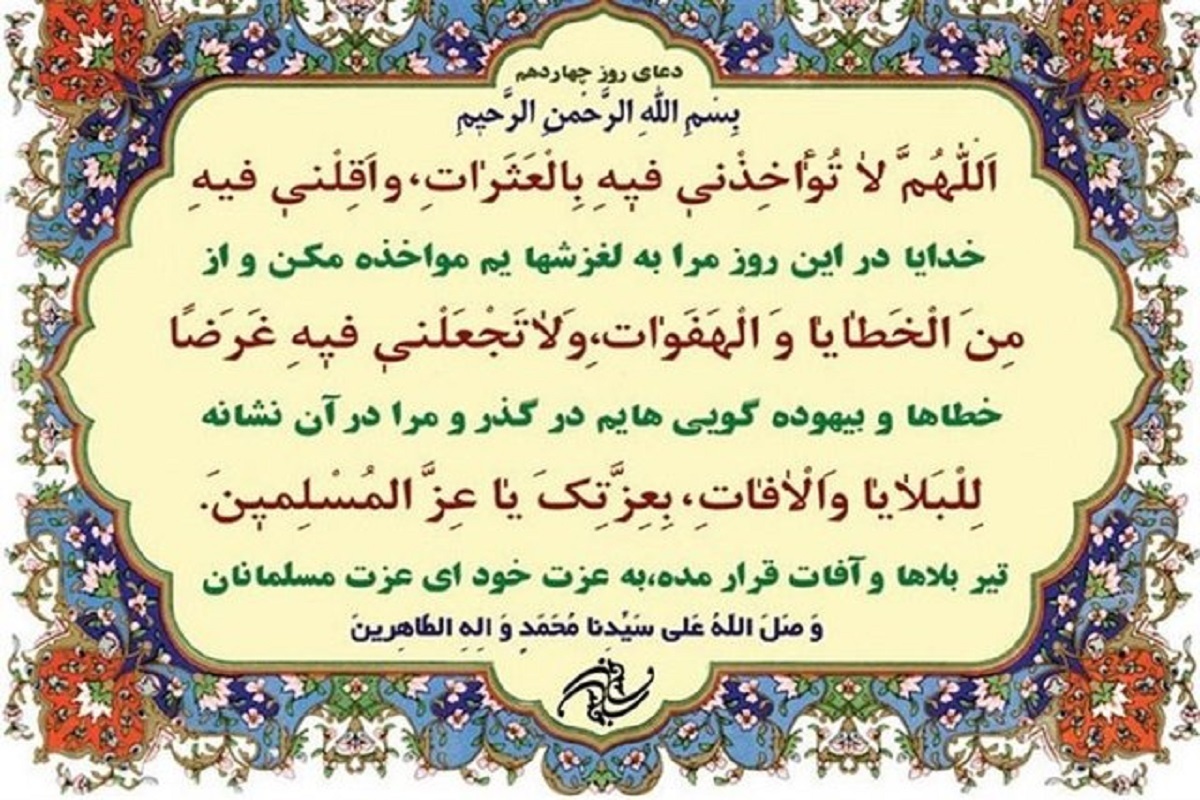 دعای روز چهاردهم
بِسْمِ اللهِ الرَّحْمنِ الرَّحیمِ
اَللّهُمَّ لا تُؤاخِذْنی فیهِ بِالْعَثَراتِ، واَقِلْنی فیهِ
خدایا در این روز مرا به لغزشها یم مواخذه مکن و از
مِنَ الْخَطایا وَ الْهَفَوات،ِوَلاتَجْعَلْنی فیهِ غَرَضًا
خطاها و بیهوده گویی هایم در گذر و مرا در آن نشانه
لِلْبَلایا والْافاتِ، بِعِزَّتِکَ یا عِزَّ المُسْلِمینَ.
تیر بلاها و آفات قرار مده،به عزت خود ای عزت مسلمانان
وَ صَلَ اللهُ عَلی سَیِّدِنا مُحَمَدٍ وَ الِهِ الطّاهِرینَ